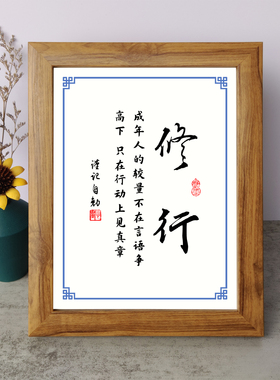 修行
成年人的较量不在言语争
高下 只在行动上见真章
谨记自勉